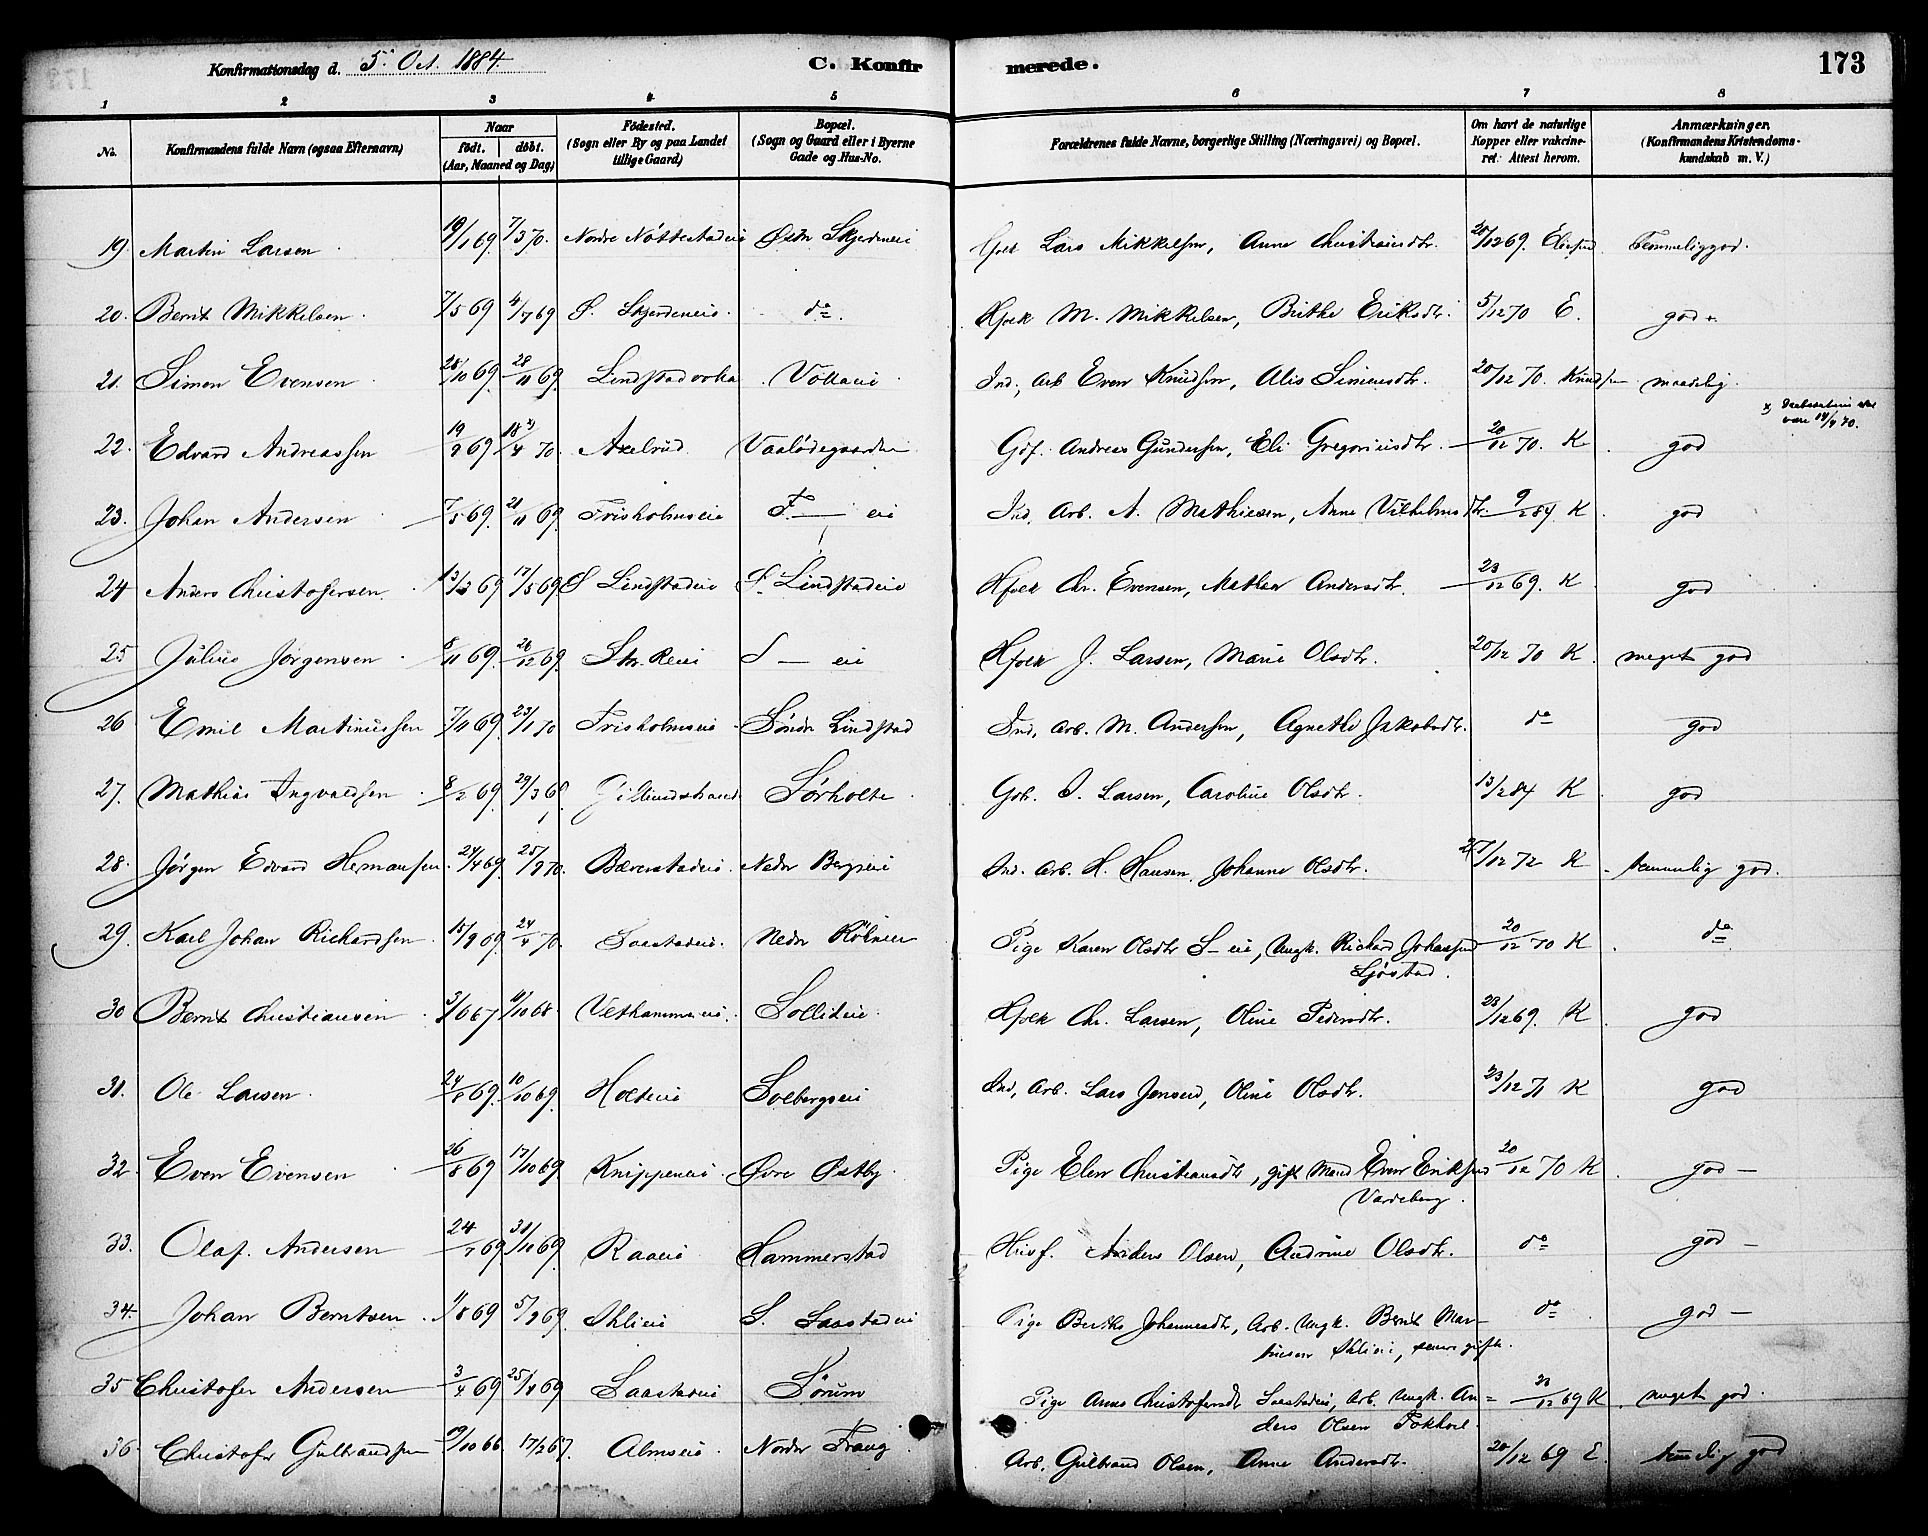 Konfirmationsdag d. 5. Oct. 1884. C. Konfirmerede. 173
1 2 3 4 5 6 7 8
No. Konfirmandens fulde Navn (ogsaa Efternavn) Naar født. døbt. (Aar, Maaned og Dag) Fødested. (Sogn eller By og paa Landet tillige Gaard) Bopæl. (Sogn og Gaard eller i Byerne Gade og Hus-No. Forældrenes fulde Navne, borgerlige Stilling (Næringsvei) og Bopæl. Om havt de naturlige Kopper eller vakcineret. Attest herom. Anmærkninger. (Konfirmandens Kristendomskundskab m. V.)
19. Martin Larsen 19/1 69. 7/3 70. Nordre Lars Mikkelsen, Anne 20/12 69. Temmelig god.
20. Bernt Mikkelsen. 7/5 69 4/7 69 do Hfolk M. Mikkelsen, Birthe Eriksdtr. 5/12 70 E. god
21. Simon Evensen 28/10 69. 28/11 69. Ind, Arb Even Knudsen, Alis Simensdtr. 20/12 70. Knudsen maadelig.
22. Edvard Andreassen 19/9 69 18/4 70 Axelrud Gdf. Andreas Gundersen, Eli Gregoriusdtr. 20/12 70. K god
23. Johan Andersen 7/5 69. 21/11 69. Frisholmseie F. — eie Ind, Arb. A. Mathiesen, Anne Vilhelmsdtr. 9/2 84 K god
24 Anders Christofersen. 13/3 69 17/5 69 S Lindstadeie S. Lindstadeie Hfolk Chr. Evensen, Mathea Andersdtr. 23/12 69. K god
25 Julius Jørgensen 8/11 69. 26/12 69. S — eie Hfolk J. Larsen, Marie Olsdtr. 20/12 70 K. meget god
26 Emil Martiniussen 7/11 69. 23/1 70 Frisholmseie Søndr Lindstad Ind, Arb. M. Andersen, Agnethe Jakobsdtr. do god
27. Mathias Ingvaldsen 8/2 69. 29/3 69 Sørholte I. Larsen, Caroline Olsdtr. 13/2 84 K god
28. Jørgen Edvard Hermansen. 24/4 69. 25/9 70. Bæverstadeie Nedr Bergseie Ind. Arb. H. Hansen, Johanne Olsdtr. 27/12 72 K temmelig god.
29. Karl Johan Richardsen 15/9 69. 24/4 70. Saastadeie. Nedr Pige Karen Olsdtr S— eie, Ungk. Richard Johansen 20/12 70 K do
Sjøstad.
30 Bernt Christiansen 9/10 68. Hfolk Chr. Larsen, Oline Pedersdtr. 23/12 69. K god
31. Ole Larsen 24/8 69. 10/10 69. Holteeie Solbergseie Ind, Arb. Lars Jensen, Oline Olsdtr. 23/12 71 K god
32. Even Evensen 26/8 69 17/10 69. Knippeneie Øvre Østby Pige Elen Christiansdtr, gift Mand Even Eriksen 20/12 70 K god —
Vardeberg.
33. Olaf. Andersen 24/7 69 31/10 69. Raaeie Hammerstad Anders Olsen, Andrine Olsdtr. do god —
34. Johan Berntsen 1/8 69 5/9 69. Ihlieie S. Saastadeie Pige Berthe Johannesdtr, Arb. Ungk. Bernt Mar-
tinsen Ihlieie, senere gifte. do god —
35 Christofer Andersen 3/4 69 25/4 69 Saastadeie Sørum Pige Anne Christofersdtr Saastadeie, Arb. Ungk. An- 23/12 69 K. meget god.
ders Olsen
36. Christofer Gulbrandsen 9/10 66. 17/2 67. Almseie. Nordre Frang Arb. Gulbrand Olsen, Anne Andersdtr. 20/12 69 E. god